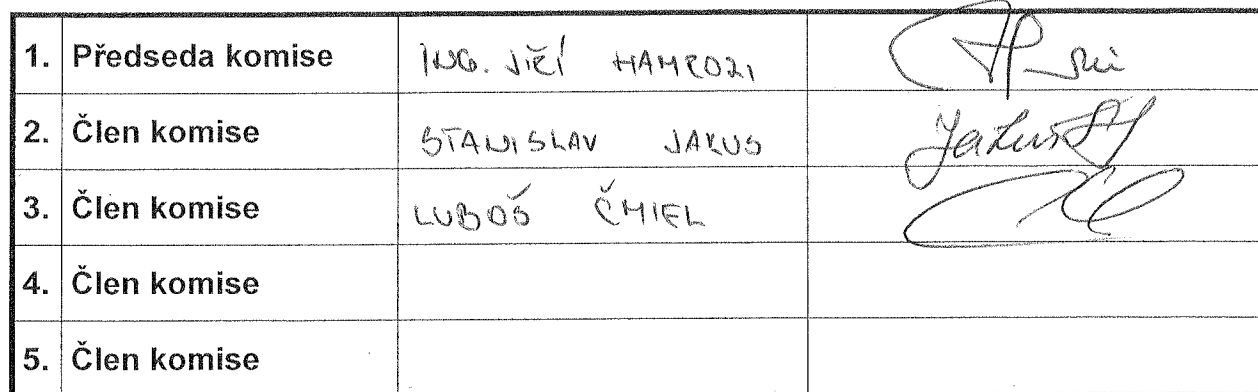 1. Předseda komise ING. JIŘÍ HAMROZI
2. Člen komise STANISLAV JAKUS
3. Člen komise LUBOŠ ČMIEL
4. Člen komise
5. Člen komise